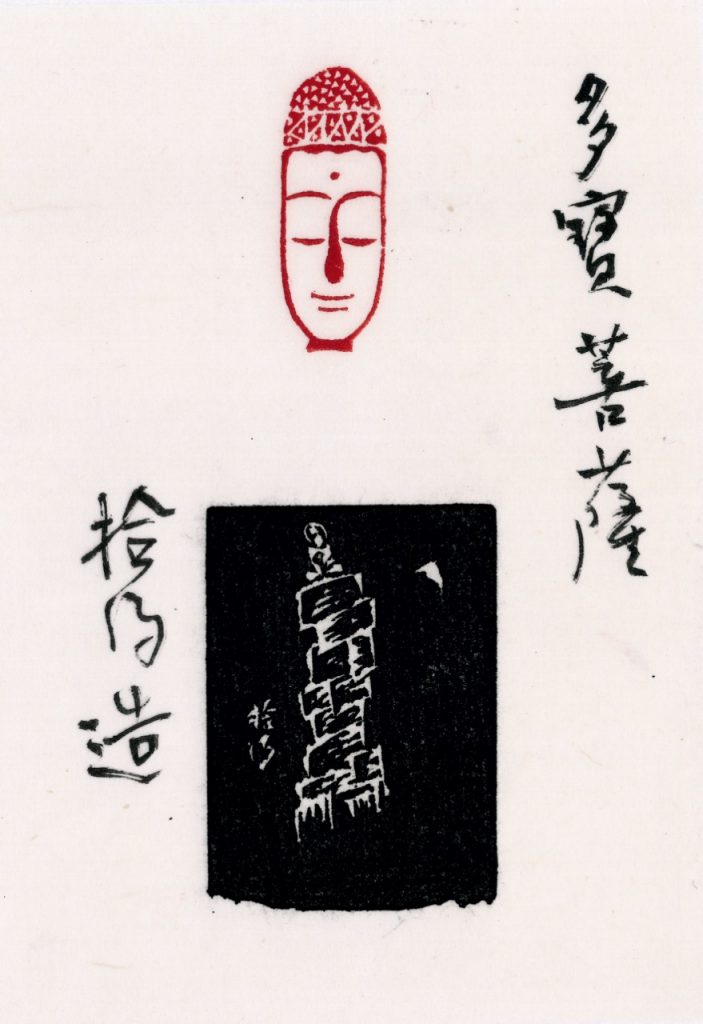 多寶菩薩
拾得造
拾得